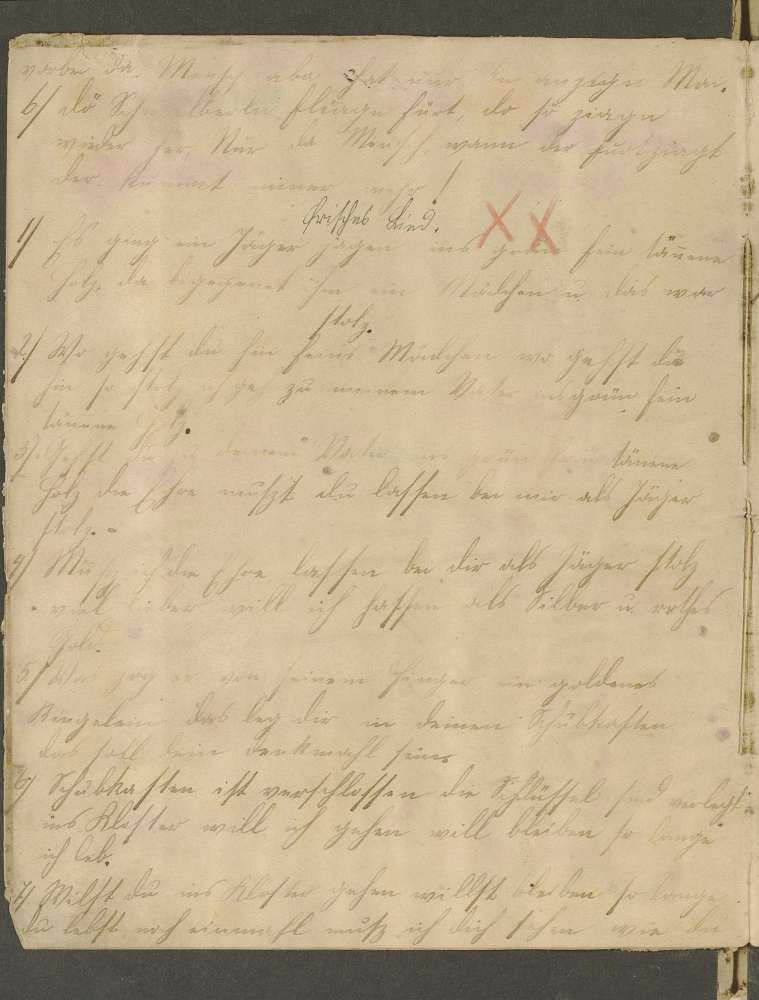 vorbei, da Mensch aba hat nur an anzign Mai.
6/ dö Schwalberln fliagn furt, do sö ziagn
wieder her, Nur da Mensch, wann der furtziagt
der kummt nimer mehr!
frisches Lied.
1/ Es ging ein Jäger jagen ins grün fein tänene
holz, da begegnet ihm ein Mädchen u. das war
stolz.
2/ Wo gehst du hin feins Mädchen wo gehst du
hin so stolz ich geh zu meinem Vater ins grün fein
tänene holz.
3/ Gehst du zu deinem Vater ins grün fein tänene
holz die Ehre mußt du lassen bei mir als Jäger
stolz.
4/ Muß ich die Ehre lassen bei dir als Jäger stolz
viel lieber will ich hassen als Silber u. rothes
Gold.
5/ Was zog er von seinem Finger ein goldenes
Ringelein das leg dir in deinen Schubkasten
das soll dein denkmahl sein
6/ Schubkasten ist verschlossen die Schlüssel sind verlegt
ins Kloster will ich gehen will bleiben so lange
ich leb.
7/ Wilst du ins Kloster gehen willst bleiben so lange
du lebst, noch einmahl muß ich dich sehen wie du